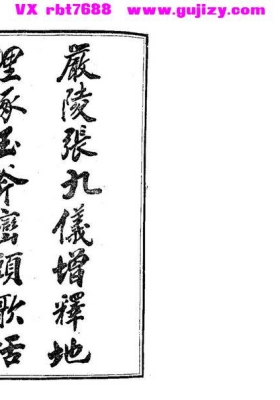 VX rbt7688 www.gujizy.com
嚴陵張九儀增釋地
理琢玉斧巒頭歌括